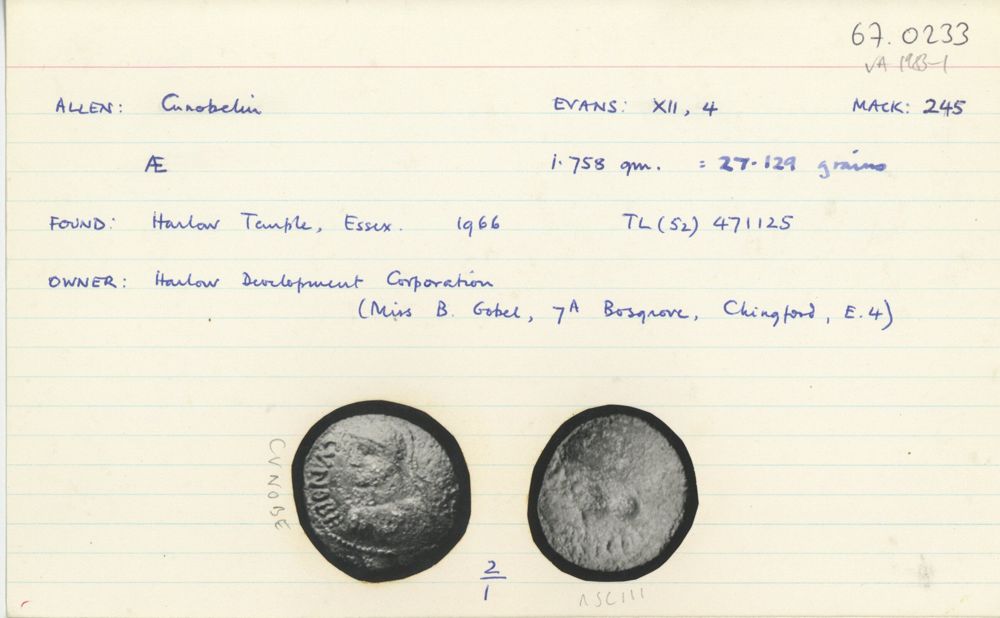 67.0233
VA 1983-1
ALLEN: Cunobelin EVANS: XII, 4 MACK: 245
Æ 1.758 gm. = 27.129 grains
FOUND: Harlow Temple, Essex. 1966 TL (52) 471125
OWNER: Harlow Development Corporation
(Miss B. Gobel, 7A Bosgrove, Chingford, E.4)
CVNOBE
CVNOBE
2
1